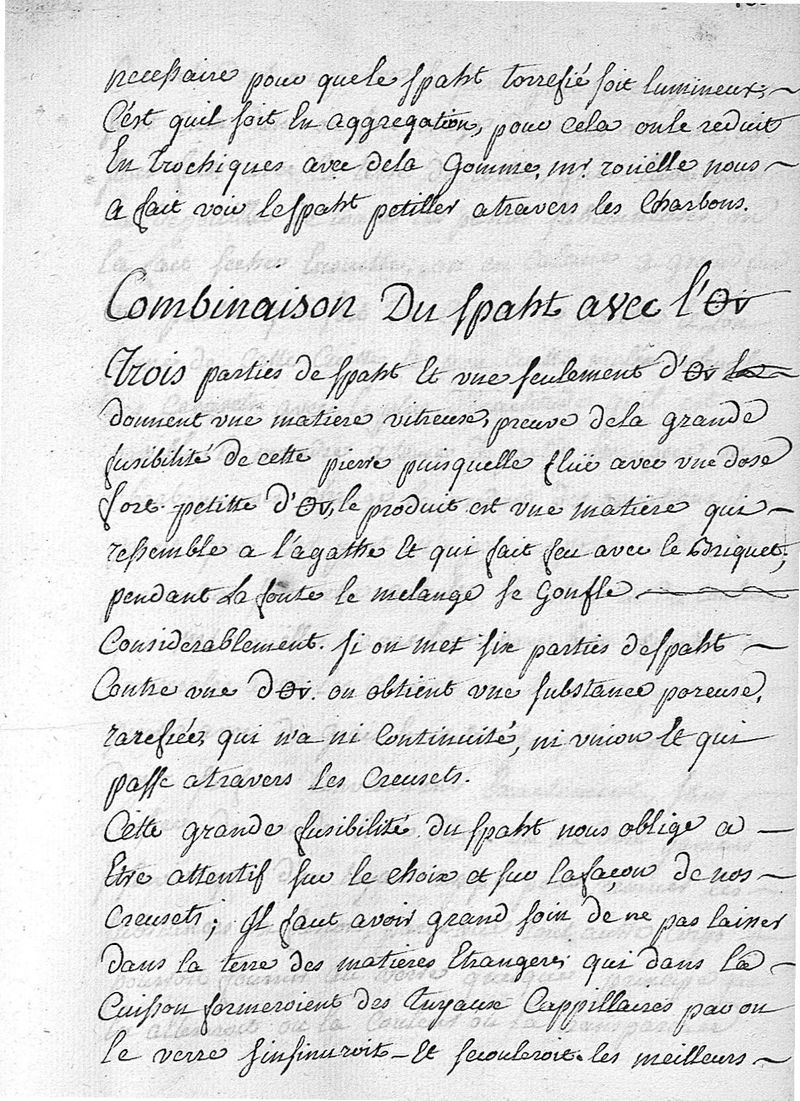 necessaire pour que le spaht torrefié soit lumineux,
C'est quil soit En aggregation, pour cela on le reduit
En trochiques avec de la Gomme, mr. roüelle nous
a fait voir le spaht petiller a travers les Charbons.
Combinaison Du spaht avec l'Or
Trois parties de spaht Et vne seulement d'Or
donnent vne matiere vitreuse, preuve de la grande
fusibilité de cette pierre puisquelle flüe avec vne dose
fort petitte d'Or, le produit est vne matiere qui
ressemble a l'agathe Et qui fait feu avec le Briquet;
pendant La fonte le melange se Gonfle
Considerablement. si on met six parties de spaht
Contre vne d'Or. on obtient vne substance poreuse,
rarefiée, qui n'a ni Continuité, ni vnion Et qui
passe a travers les Creusets.
Cette grande fusibilité du spaht nous oblige a
Etre attentif sur le choix et sur la façon de nos
Creusets; Il faut avoir grand soin de ne pas laisser
dans la terre des matieres Etrangeres qui dans la
Cuisson formeroient des Tuyaux Cappillaires par ou
le verre s'insinuroit Et secouleroit. les meilleurs